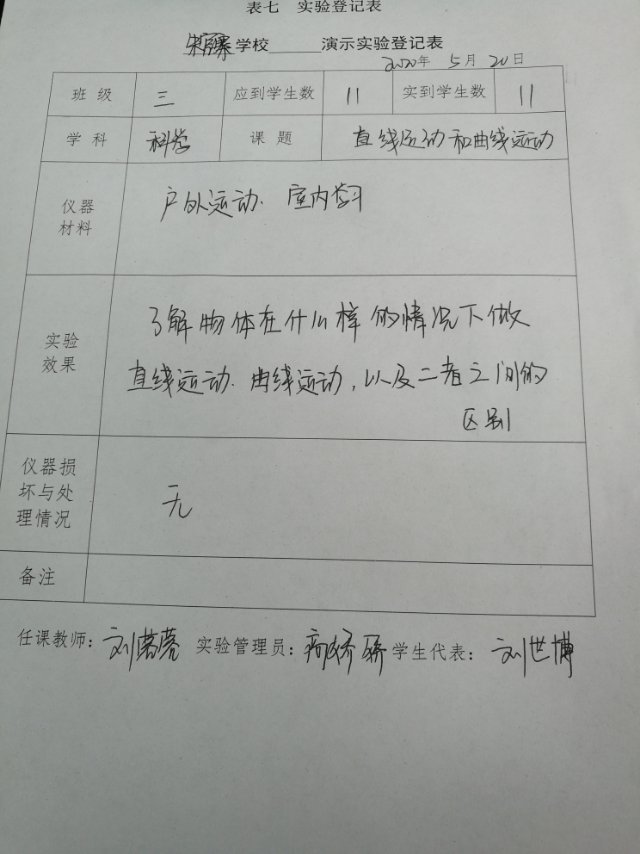 表七 实验登记表
学校 演示实验登记表
2020年 5月 20日
班 级 三 应到学生数 11 实到学生数 11
学 科 科学 课 题 直线运动和曲线运动
仪器
材料
户外运动. 室内学习
实验
效果
了解物体在什么样的情况下做
直线运动.曲线运动,以及二者之间的
区别
仪器损
坏与处
理情况
无
备注
任课教师: 刘 实验管理员: 学生代表: 刘世博